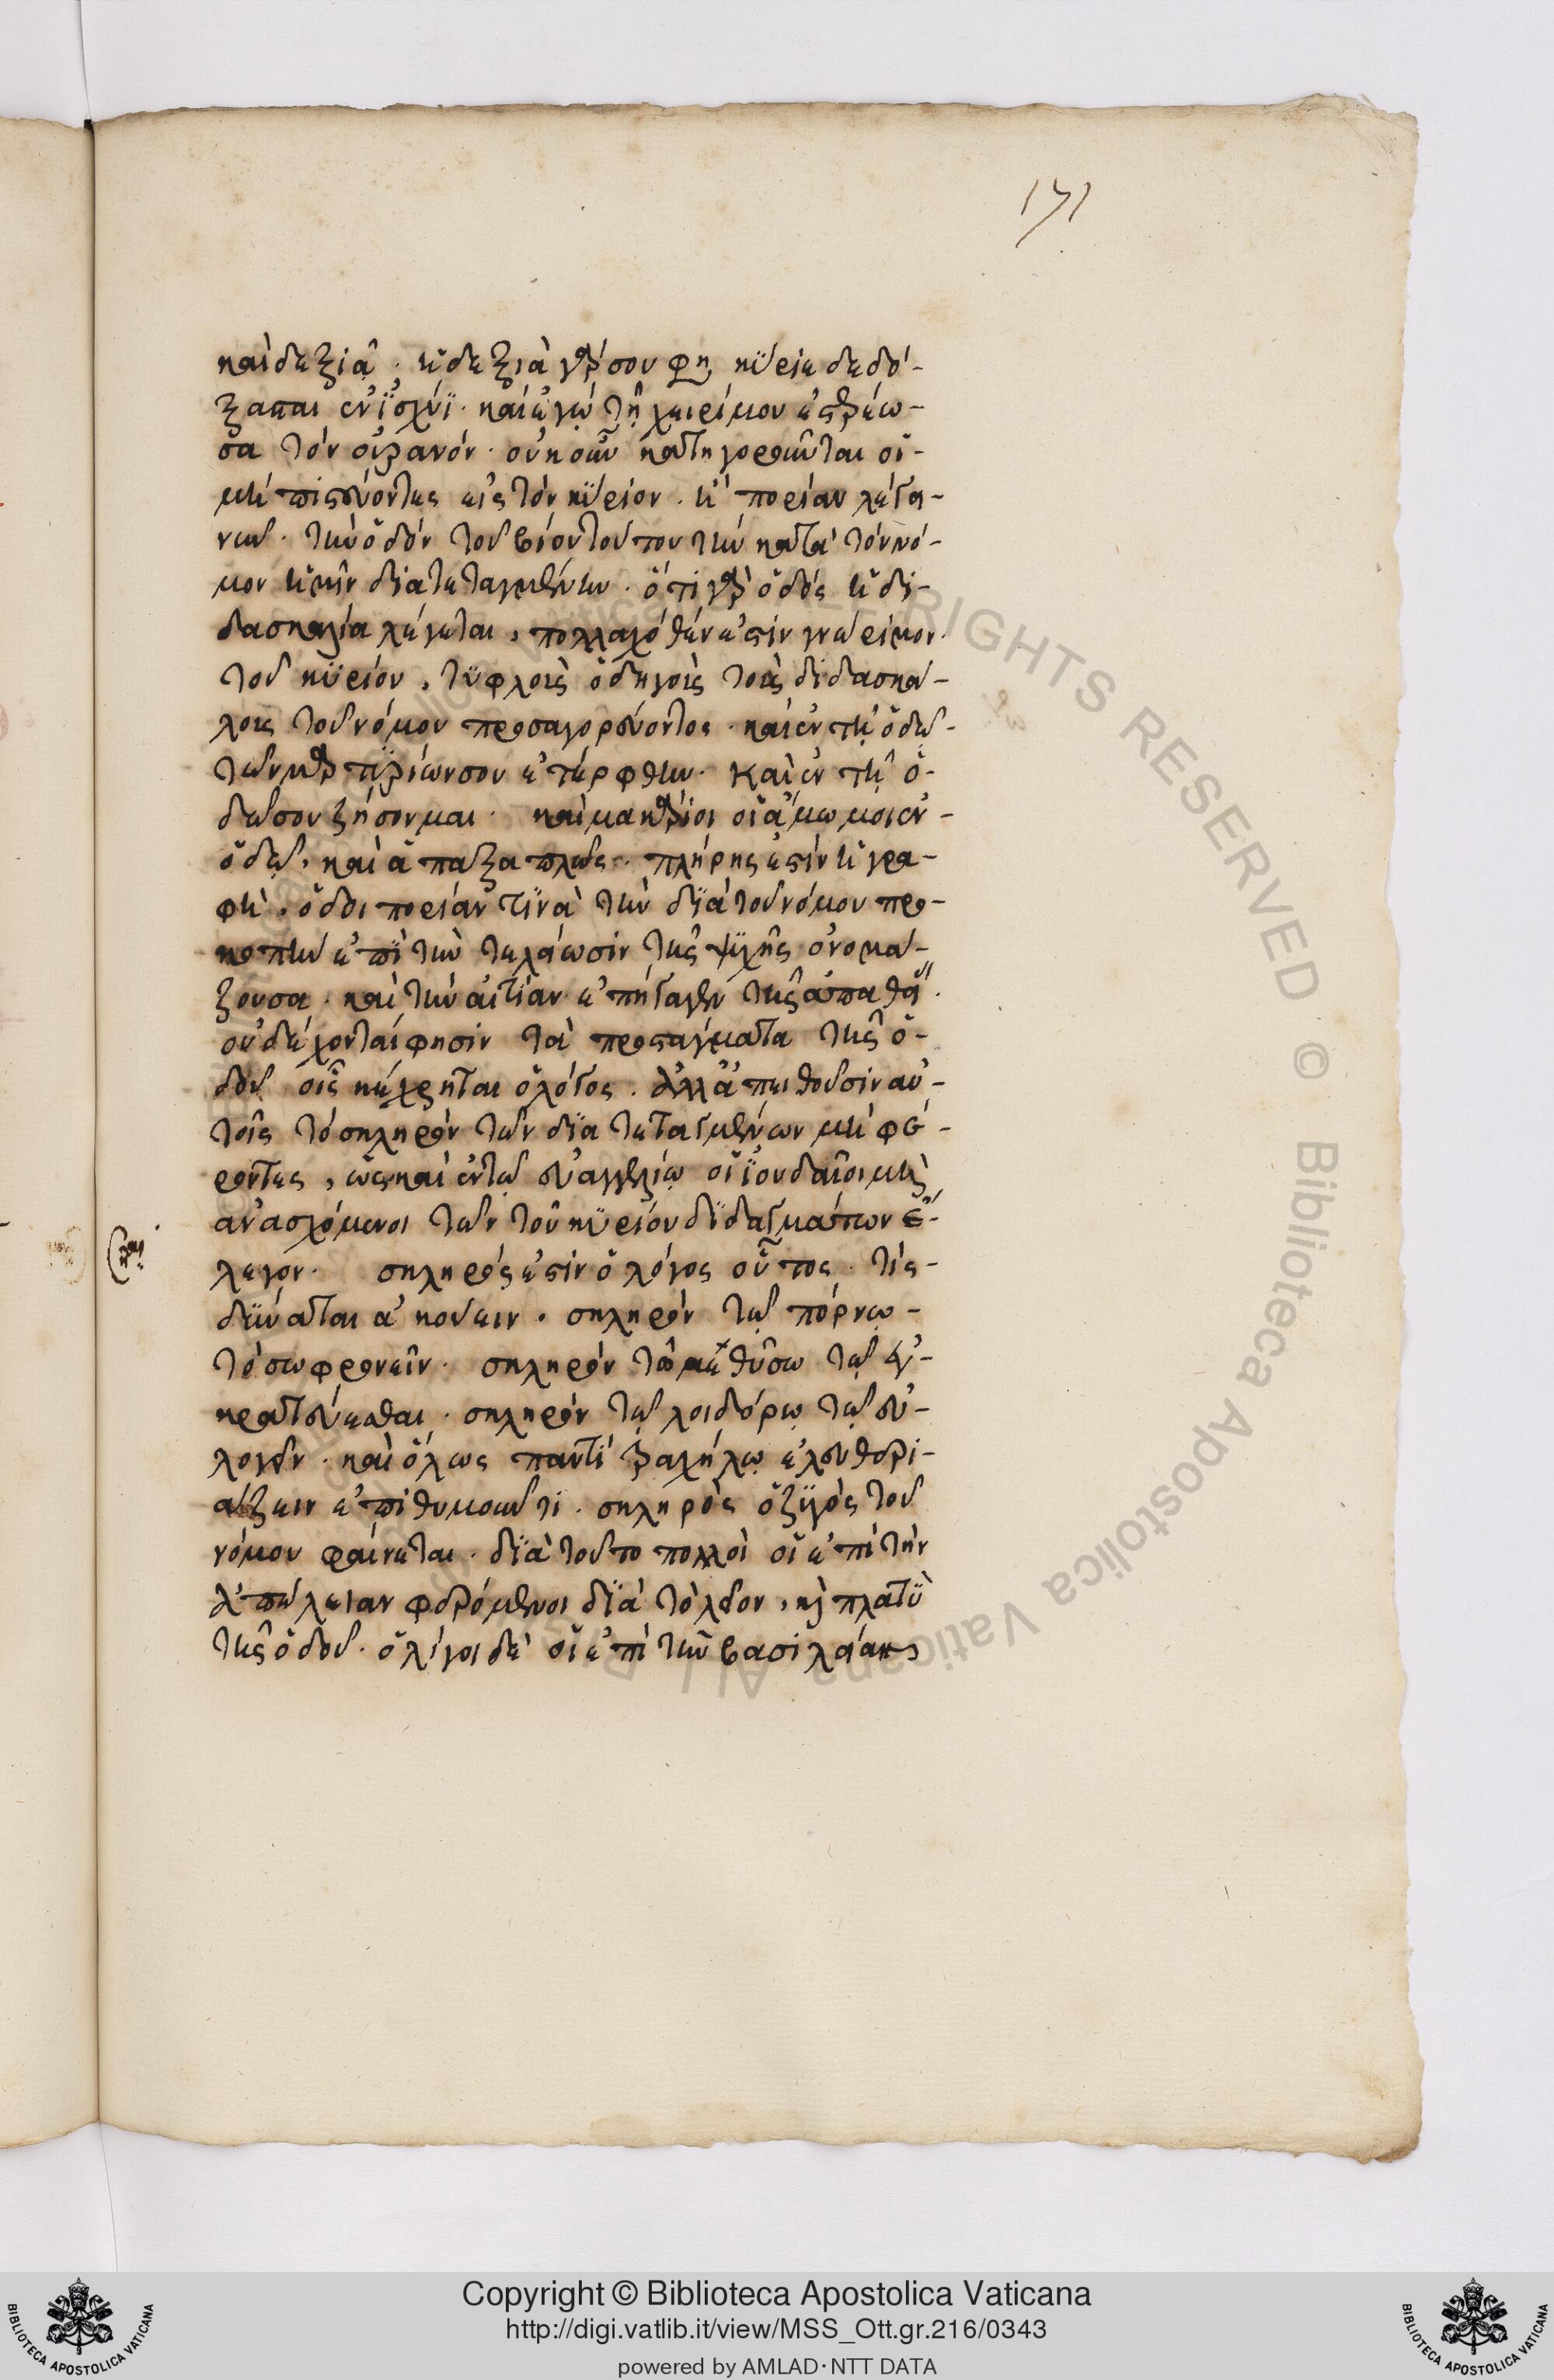 171
καὶ δεξιᾶ· ἡ δεξιὰ γάρ σου φη κύριε δεδό-
ξασται ἐν ἰσχύϊ· καὶ ἐγὼ τῆ χειρί μου ἐστερέω-
σα τὸν οὐρανόν· οὐκοῦν κατηγοροῦνται οἱ
μὴ πιστεύοντες εἰς τὸν κύριον· ἡ πορίαν λέγοι-
τὴν ὁδὸν τοῦ βίου τούτου τὴν κατὰ τὸν νό-
μον ἡμῖν διατεταγμένην· ὅτι γὰρ ὁδὸς ἡ δι-
δασκαλία λέγεται, πολλαχόθεν ἐστὶν γνώριμον·
τοῦ κυρίου, τυφλοὺς ὁδηγοὺς τοὺς διδασκά-
λους τοῦ νόμου προσαγορεύοντος· καὶ ἐν τῆ ὁδῶ
τῶν μαρτυρίων σου ἐτέρφθην· Καὶ ἐν τῆ ὁ-
δῶ σου ζήσον μαι· καὶ μακάριοι οἱ ἄμωμοι ἐν
ὁδῶ, καὶ ἅπαξ ἁπλῶς· πλήρης ἐστὶν ἡ γρα-
φὴ, ὁδοιπορίαν τινὰ τὴν διὰ τοῦ νόμου προ-
κοπὴν ἐπὶ τὴν τελείωσιν τῆς ψυχῆς ὀνομά-
ζουσα· καὶ τὴν αἰτίαν ἐπήγαγεν τῆς ἀπαθεί
οὐ δέχονταί φησιν τὰ προστάγματα τῆς ὁ-
δοῦ οἷς κέχρηται ὁ λόγος. ἀλλὰ πειθοῦσιν αὐ-
τοῖς τὸ σκληρὸν τῶν διατεταγμένων μὴ φέ-
ροντες, ὡς καὶ ἐν τῶ εὐαγγελίω οἱ ἰουδαῖοι μὴ
ἀνασχόμενοι τῶν τοῦ κυρίου διδαγμάτων ἔ-
λεγον· σκληρός ἐστιν ὁ λόγος οὗτος· τίς
δύναται ἀκούειν· σκληρὸν τῶ πόρνω
τὸ σωφρονεῖν· σκληρὸν τῶ μεθύσω τῶ ἐγ-
κρατεύεσθαι· σκληρὸν τῶ λοιδόρω τῶ εὐ-
λογεῖν· καὶ ὅλως παντὶ τραχήλω ἐλευθερι-
άζειν ἐπιθυμοῦντι· σκληρὸς ὁ ζυγὸς τοῦ
νόμου φαίνεται· διὰ τοῦτο πολλοὶ οἱ ἐπὶ τὴν
ἀπώλειαν φερόμενοι διὰ τὸ λεῖον, κ πλατὺ
τῆς ὁδοῦ· ὀλίγοι δὲ οἱ ἐπὶ τὴν βασιλείαν
Copyright © Biblioteca Apostolica Vaticana
http://digi.vatlib.it/view/MSS_Ott.gr.216/0343
powered by AMLAD·NTT DATA